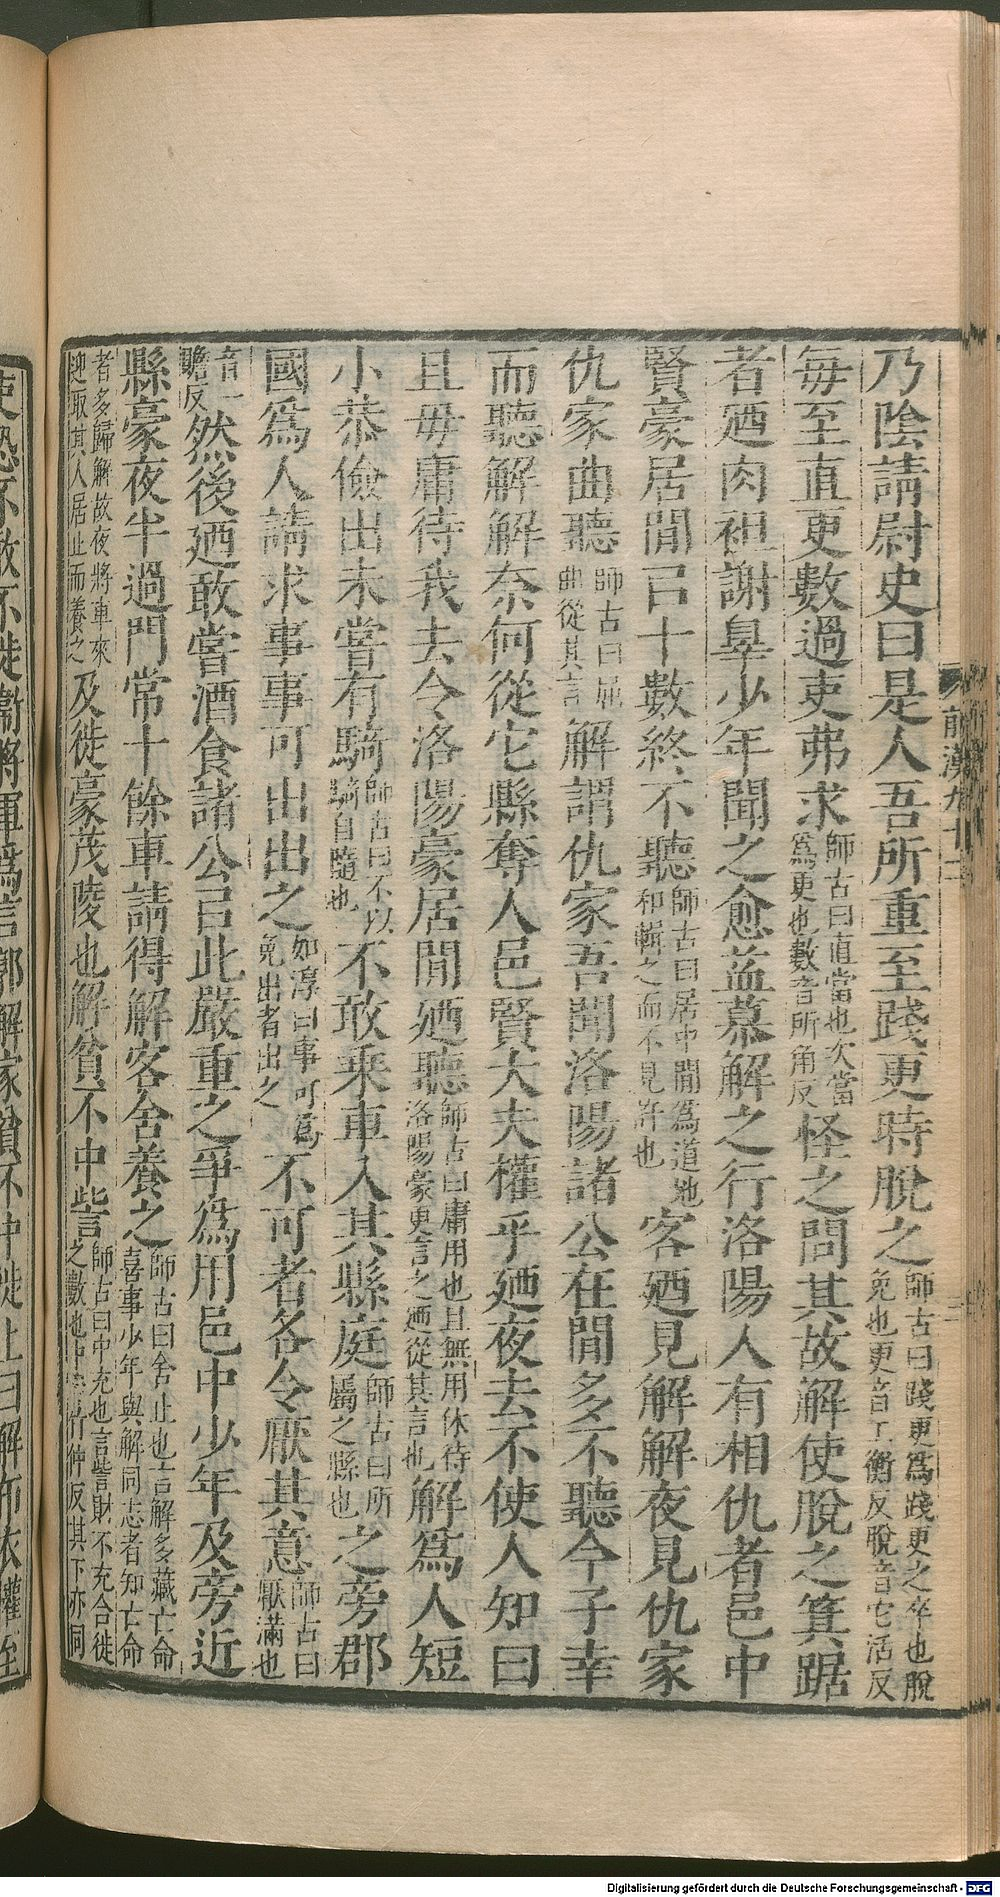 乃陰請尉史曰是人吾所重至踐更時脫之師古曰踐更爲踐更之卒也脫免也更音工衡反脫音它活反
每至直更數過吏弗求師古曰直當也次當爲更也數音所角反怪之問其故解使脫之箕踞
者廼肉袒謝辠少年聞之愈益慕解之行洛陽人有相仇者邑中
賢豪居閒已十數終不聽師古曰居中閒爲道地和輯之而不見許也客廼見解解夜見仇家
仇家曲聽師古曰屈曲從其言解謂仇家吾聞洛陽諸公在閒多不聽今子幸
而聽解解柰何從它縣奪人邑賢大夫權乎廼夜去不使人知曰
且毋庸待我去令洛陽豪居閒廼聽師古曰庸用也且無用休待洛陽豪更言之廼從其言也解爲人短
小恭儉出未嘗有騎師古曰不以騎自隨也不敢乘車入其縣庭師古曰所屬之縣也之旁郡
國爲人請求事事可出出之如淳曰事可爲免出者出之不可者各令厭其意師古曰厭滿也
音一瞻反然後廼敢嘗酒食諸公㠯此嚴重之爭爲用邑中少年及旁近
縣豪夜半過門常十餘車請得解客舍養之師古曰舍止也言解多藏亡命喜事少年與解同志者知亡命
者多歸解故夜將車來迎取其人居止而養之及徙豪茂陵也解貧不中訾師古曰中充也言訾財不充合徙之數也中音竹仲反其下亦同
前漢九十二
吏恐不敢不徙衞將軍爲言郭解家貧不中徙上曰解布衣權至
Digitalisierung gefördert durch die Deutsche Forschungsgemeinschaft - DFG